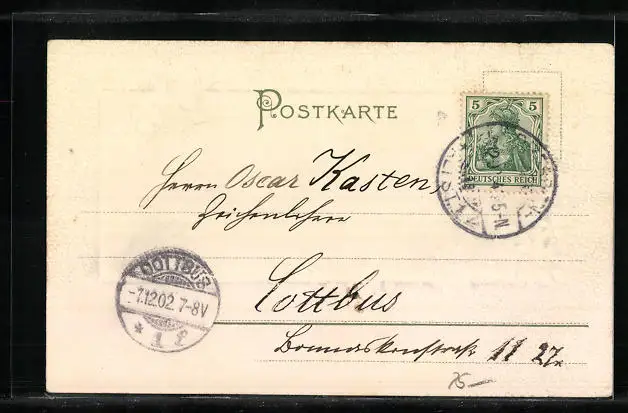 POSTKARTE
5 5
DEUTSCHES REICH
5-N
Herrn Oscar Kasten,
Zeichenlehrer
COTTBUS
-7.12.02. 7-8V
* 1 f
Cottbus
11 27
75 –